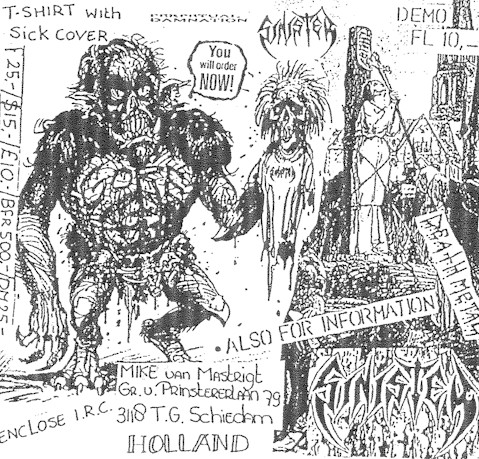 T-SHIRT with
Sick COVER
F25,-/$15,-/£10,-/BFR 500,-/DM25
PERPETUAL
DAMNATION
SINISTER
You
will order
NOW!
DEMO
FL 10,-
SINISTER
DEATH METAL
. ALSO FOR INFORMATION
MIKE van Mastrigt
Gr. v. Prinstererlaan 79
3118 T.G. Schiedam
HOLLAND
ENCLOSE I.R.C.
SINISTER